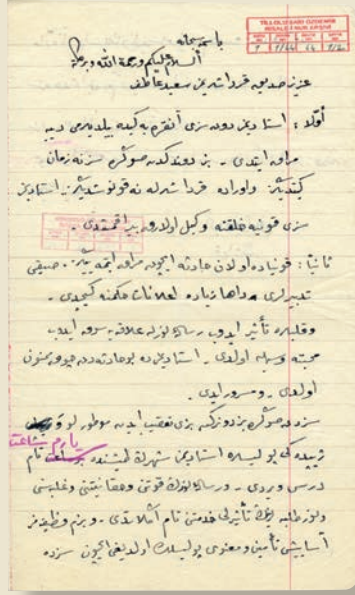 باسمه سبحانه
السلام عليكم ورحمة الله وبركاته
عزيز صديق قرداشمز سعيد عاطف
أولا : استاديمز دون سزى آنقره يه كيده بيلديمى دييه
مراق ايتدى . بز دوندكدن صوكره سز نه زمان
كيتديكز واوراده قرداشلرله نه قونوشديكز . استاديمز
سزى قونيه خلقنه وكيل اولارق براقمشدى .
ثانيا : قونياده اولان حادثه ايچون مراق ايتمه ييكز .
تدبيرلرى داها زياده اعلانات حكمنه كچدى .
وقلبلره تأثير ايدوب رساله نورله علاقه يه سوق ايدوب
محبته وسيله اولدى . استاديمز ده بو حادثه دن چوق ممنون
اولدى . ومسرور ايدى .
سزدن صوكره بز دونركن بزى تعقيب ايدن
يارم ساعت
پوليسلره استاديمز شهرك ديشنده تام
درس ويردى . ورساله نورك قوتنى وحقانيتنى وغلبه سنى
ونور طلبه لرينك تأثيرلى خدمتنى تام آكلاتدى . وبزم وظيفه مز
آسايشى تأمين ومعنوى پوليسلك اولديغى ايچون سزده